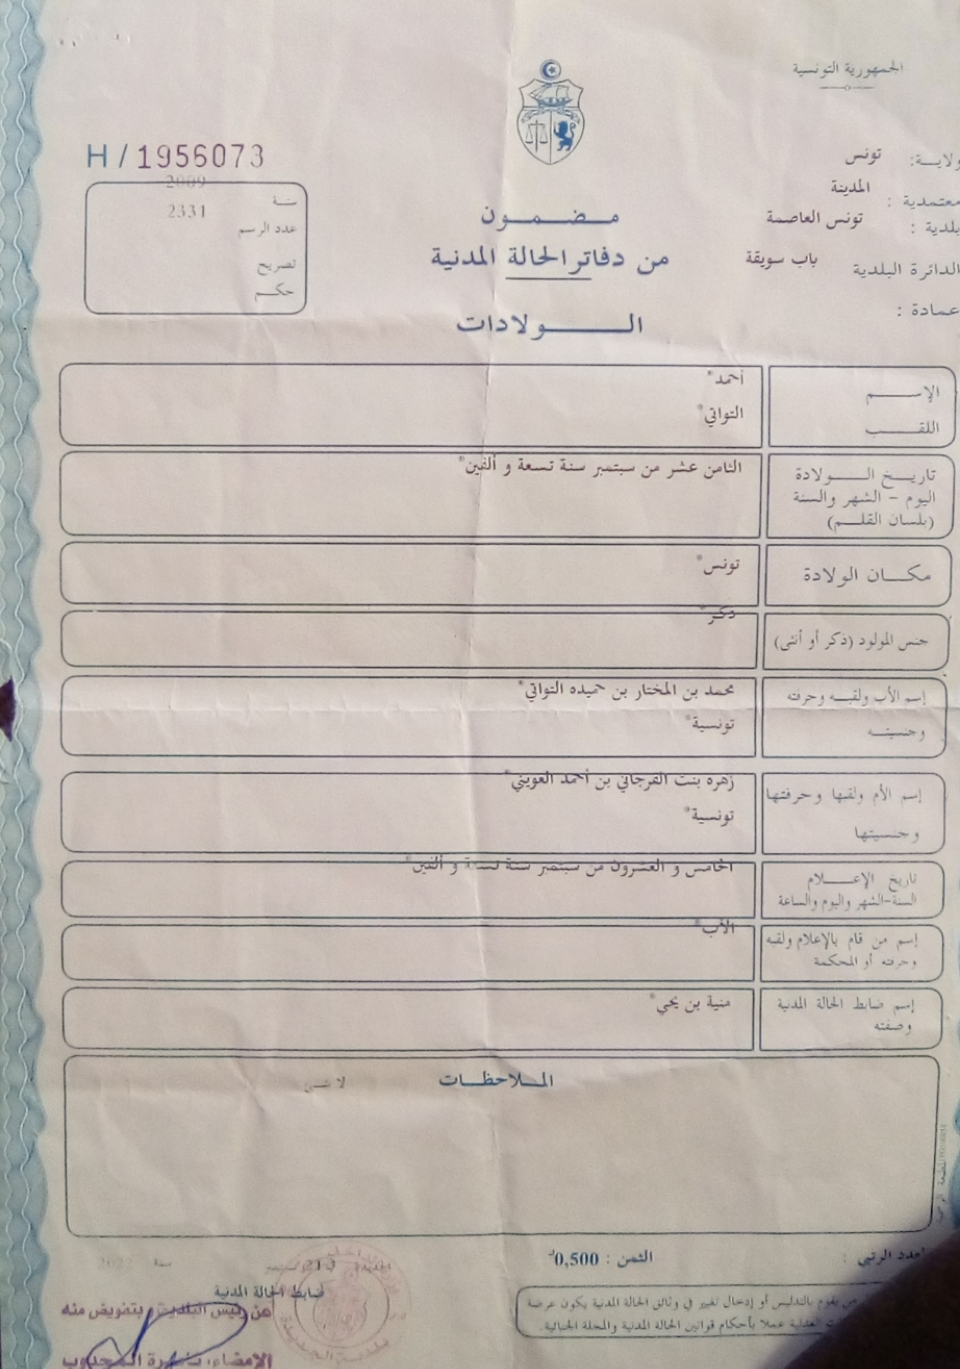 الجمهورية التونسية
H / 1956073
ولاية: تونس
معتمدية : المدينة
بلدية : تونس العاصمة
الدائرة البلدية باب سويقة
عمادة :
سنة 2009
عدد الرسم 2331
تصريح
حكم
مضمون
من دفاتر الحالة المدنية
الولادات
الإسم أحمد*
اللقب التواتي*
تاريخ الولادة
اليوم - الشهر والسنة
(بلسان القلم)
الثامن عشر من سبتمبر سنة تسعة و ألفين*
مكان الولادة تونس*
جنس المولود (ذكر أو أنثى) ذكر*
إسم الأب ولقبه وحرفته محمد بن المختار بن حميده التواتي*
وجنسيته تونسية*
إسم الأم ولقبها وحرفتها زهره بنت الفرجاني بن أحمد العويني*
وجنسيتها تونسية*
تاريخ الإعلام
السنة-الشهر واليوم والساعة
الخامس و العشرون من سبتمبر سنة تسعة و ألفين*
إسم من قام بالإعلام ولقبه
وحرفته أو المحكمة
الأب*
إسم ضابط الحالة المدنية
وصفته
منية بن يحي*
الملاحظات
العدد الرتبي : الثمن : 0,500د
سنة 2022
ضابط الحالة المدنية
عن رئيس البلدية بتفويض منه
الإمضاء:
من يقوم بالتدليس أو إدخال تغيير في وثائق الحالة المدنية يكون عرضة
العدلية عملا بأحكام قوانين الحالة المدنية والمجلة الجنائية.